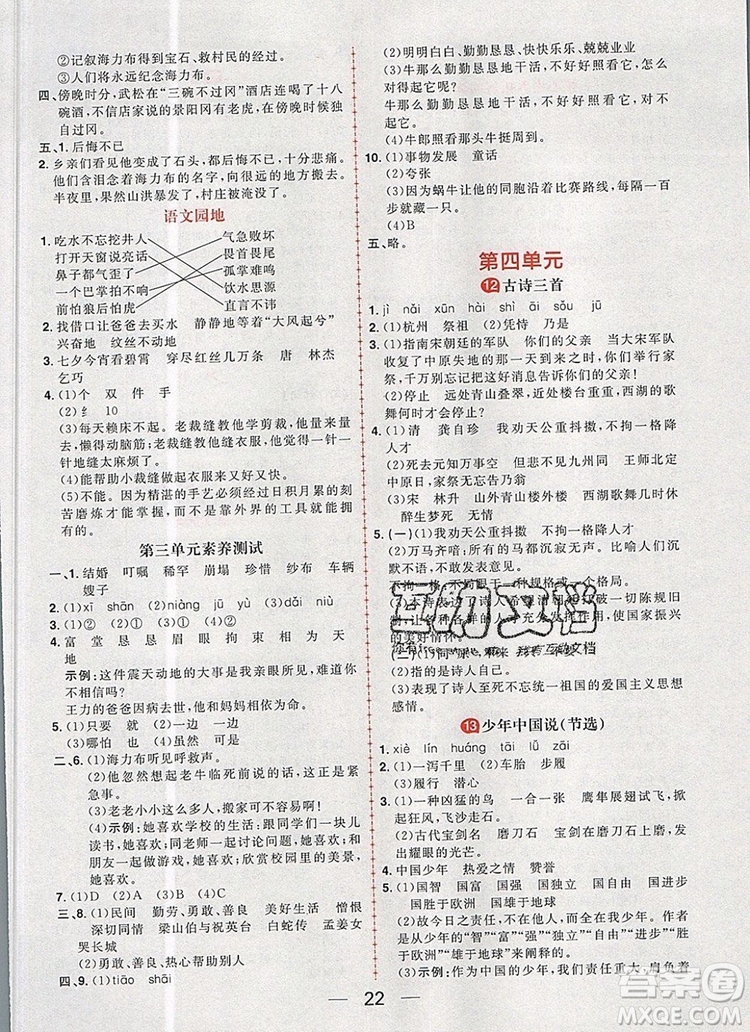 ②记叙海力布得到宝石、救村民的经过。
③人们将永远纪念海力布。
四、傍晚时分,武松在“三碗不过冈”酒店连喝了十八
碗酒,不信店家说的景阳冈有老虎,在傍晚时独
自过冈。
五、1. 后悔不已
2. 乡亲们看见他变成了石头,都后悔不已。
他们含泪念着海力布的名字,向很远的地方搬去。
半夜里,果然山洪暴发了,村庄被淹没了。
语文园地
1. 吃水不忘挖井人 气急败坏
打开天窗说亮话 畏首畏尾
鼻子都气歪了 孤掌难鸣
一个巴掌拍不响 饮水思源
前怕狼后怕虎 直言不讳
2. 找借口让爸爸去买 静静地看 “大风起兮”
兴奋地 纹丝不动地
3. 七夕今宵看碧霄 穿尽红丝几万条 唐 林杰
乞巧
4. (1)个 双 件 手
(2)纟 10
(3)每天赖床不起。老裁缝教他学剪裁,他量来量
去,懒得动脑筋;老裁缝教他缝衣服,他嫌一针
一针地缝太麻烦了。
(4)能帮助小裁缝做起衣服来又好又快。
(5)不能。因为精湛的手艺必须经过日积月累的刻
苦磨炼才能掌握,靠外界的工具是不能成
功的。
第三单元素养测试
一、1. 结婚 叮嘱 稀罕 崩塌 珍惜 纱布 车辆
嫂子
2. (1)xī shān (2)niàng jū (3)wú yù
3. (1)② (2)① (3)① ② (4)② ①
4. 富 堂 恳 恳 眉 眼 拘 束 相 为 天
地
示例:这件震天动地的大事是我亲眼所见,难道你
不相信吗?
王力的爸爸因病去世,他的妈妈和他相依为命。
5. (1)只要 就 (2)一边 一边
(3)哪怕 也 (4)虽然 可是
二、6. (1)海力布听见呼救声。
(2)这使我想起老牛临死前说的话,你遇到了紧
急事。
(3)老老小小就赶着牛羊出发了。
(4)示例:她喜欢学校的生活:她喜欢跟小伙伴一块儿
读书;她喜欢和同学讨论问题;她喜欢和
朋友一块儿做游戏;她喜欢欣赏校园里的美景,
她喜欢。
7. (1)D (2)A (3)B (4)C
三、8. (1)民间 勤劳、勇敢、善良 美好生活 憎恨
深切同情 梁山伯与祝英台 白蛇传 孟姜女
哭长城
(2)勇敢、善良、热心帮助别人
四、9. (1)tiāo shāi
(2)明明白白、勤勤恳恳、快快乐乐、兢兢业业
(3)牛那么勤勤恳恳地干活,不好好照看它,怎么
对得起它呢?
牛那么勤勤恳恳地干活,不好好照看它,对不
起它。
(4)牛郎照看那头牛挺周到。
10. (1)事物发展 童话
(2)夸张
(3)因为蜗牛让他的同胞沿着比赛路线,每隔一百
步就有一个。
(4)B
五、略。
第四单元
12 古诗三首
1. jì nǎi xūn hài shī sǒu jū
2. (1)杭州 祭祖 (2)凭恃 乃是
3. (1)指南宋朝廷的军队 你们的父亲 当大宋军队
收复了中原失地的那一天到来之时,你们举行家
祭,千万别忘记把这个好消息告诉你们的父亲!
(2)停止 远处青山叠翠,近处楼台重重,西湖的歌
舞何时才会停止?
4. (1)清 龚自珍 我劝天公重抖擞 不拘一格降人才
(2)死去元知万事空 但悲不见九州同 王师北定
中原日,家祭无忘告乃翁
(3)宋 林升 山外青山楼外楼 西湖歌舞几时休
醉生梦死 无情
5. (一)(1)我劝天公重抖擞 不拘一格降人才
(2)万马齐喑:所有的马都沉寂无声。比喻人们沉
默不语,不敢发表意见。
(二)
(2)指的是诗人自己。
(3)表现了诗人至死不忘统一祖国的爱国主义思想
感情。
13 少年中国说(节选)
1. xiè lín huáng tāi lǚ zāi
2. (1)一泻千里 (2)车胎 步履
(3)履行 潜心
3. (1)一种凶猛的鸟 一合一张 鹰隼展翅试飞,掀
起狂风,飞沙走石。
(2)古代宝剑名 磨刀石 宝剑在磨刀石上磨出,发
出耀眼的光芒。
4. 赞美中国少年 热爱之情 赞誉
5. (1)国智 国富 国强 国独立 国自由 国进步
国胜于欧洲 国雄于地球
(2)故今日之责任,不在他人,而全在我少年。作者是
从“智”“富”“强”“独立”“自由”“进步”“胜
于欧洲”“雄于地球”来阐释的。
(3)示例:作为中国的少年,我们责任重大,肩负着
22
答案圈
MXQE.COM